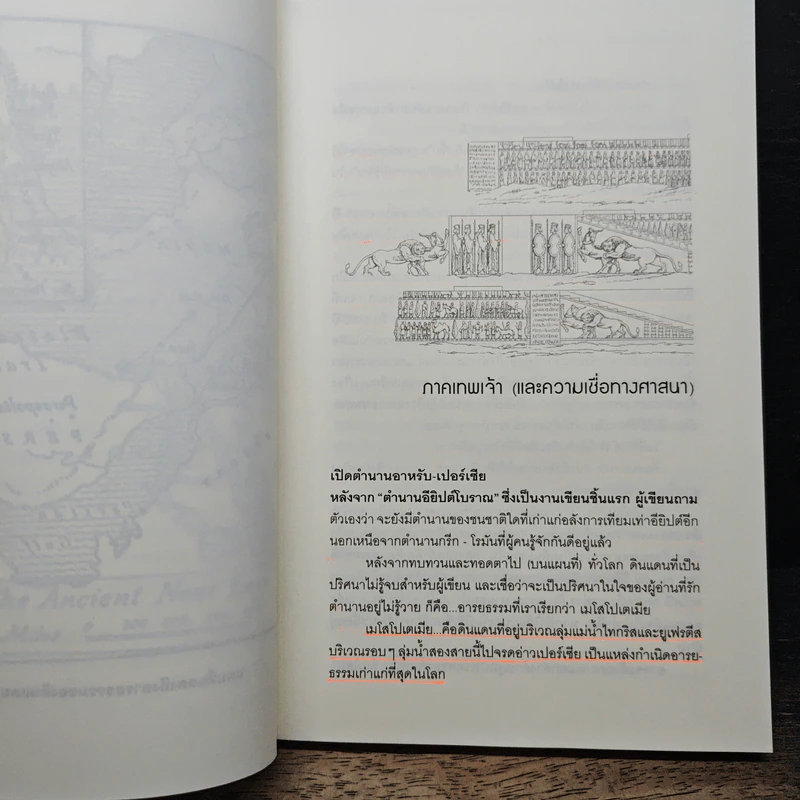 ภาคเทพเจ้า (และความเชื่อทางศาสนา)
เปิดตำนานอาหรับ-เปอร์เซีย
หลังจาก “ตำนานอียิปต์โบราณ” ซึ่งเป็นงานเขียนชิ้นแรก ผู้เขียนถาม
ตัวเองว่า จะยังมีตำนานของชนชาติใดที่เก่าแก่อลังการเทียมเท่าอียิปต์อีก
นอกเหนือจากตำนานกรีก - โรมันที่ผู้คนรู้จักกันดีอยู่แล้ว
หลังจากทบทวนและทอดตาไป (บนแผนที่) ทั่วโลก ดินแดนที่เป็น
ปริศนาไม่รู้จบสำหรับผู้เขียน และเชื่อว่าจะเป็นปริศนาในใจของผู้อ่านที่รัก
ตำนานอยู่ไม่รู้วาย ก็คือ...อารยธรรมที่เราเรียกว่า เมโสโปเตเมีย
เมโสโปเตเมีย...คือดินแดนที่อยู่บริเวณลุ่มแม่น้ำไทกริสและยูเฟรตีส
บริเวณรอบๆ ลุ่มน้ำสองสายนี้ไปจรดอ่าวเปอร์เซีย เป็นแหล่งกำเนิดอารย-
ธรรมเก่าแก่ที่สุดในโลก